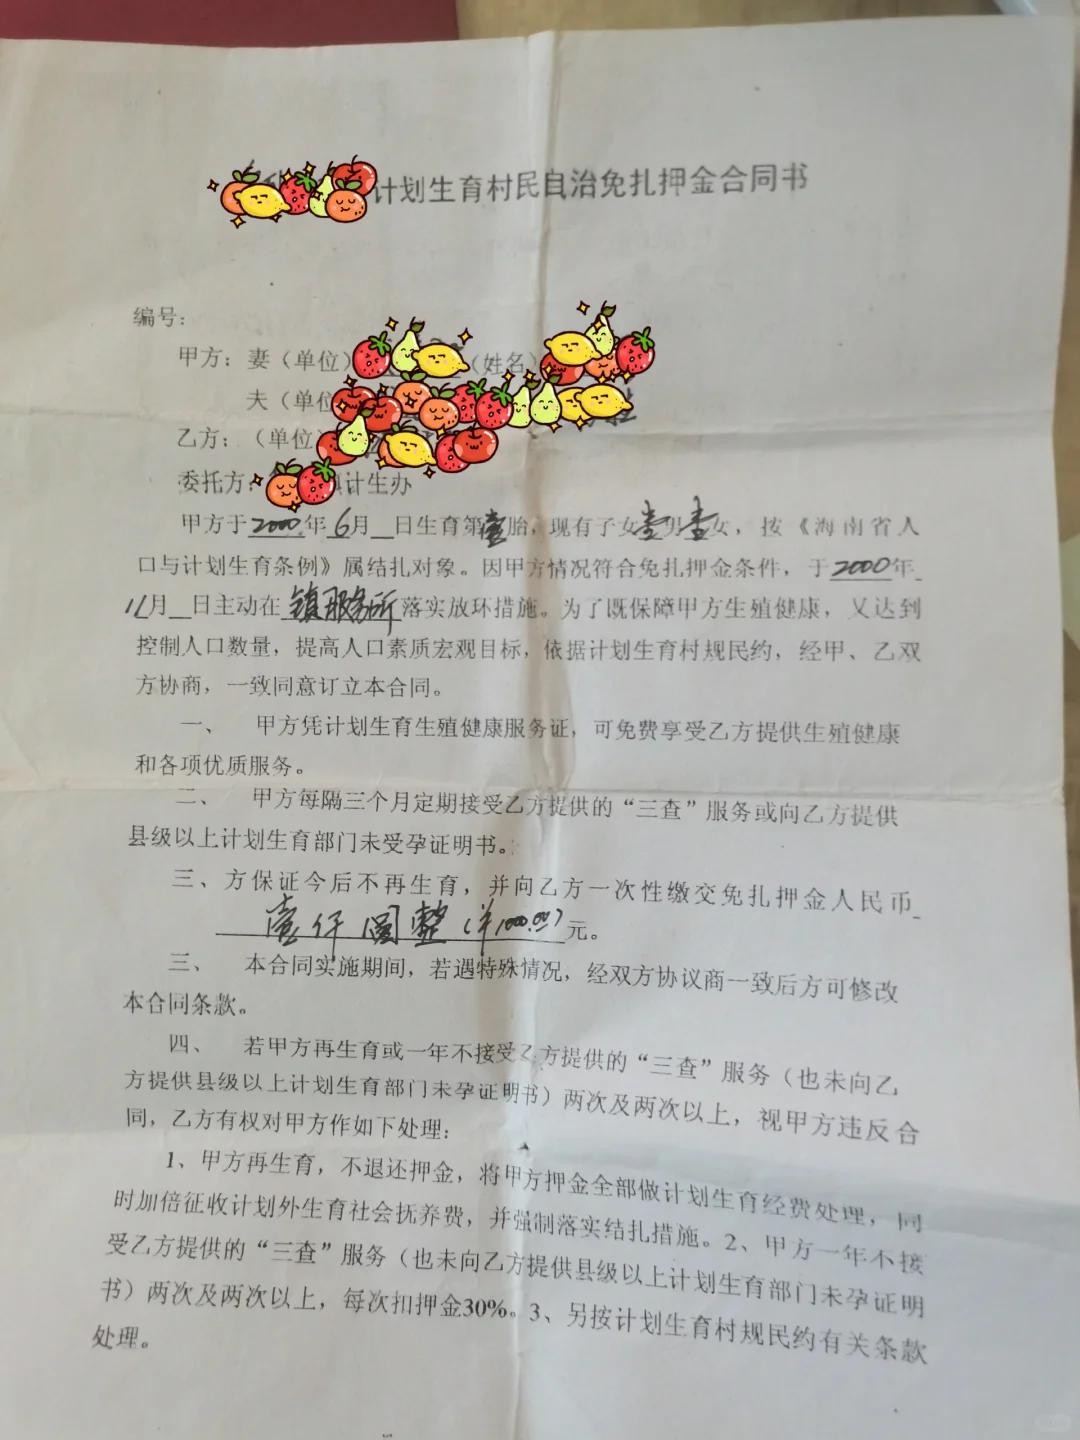 计划生育村民自治免扎押金合同书
编号：
甲方：妻（单位）（姓名）
夫（单位
乙方：（单位）
委托方：镇计生办
甲方于2000年6月__日生育第壹胎，现有子女壹男壹女，按《海南省人
口与计划生育条例》属结扎对象。因甲方情况符合免扎押金条件，于2000年
11月__日主动在镇服务所落实放环措施。为了既保障甲方生殖健康，又达到
控制人口数量，提高人口素质宏观目标，依据计划生育村规民约，经甲、乙双
方协商，一致同意订立本合同。
一、 甲方凭计划生育生殖健康服务证，可免费享受乙方提供生殖健康
和各项优质服务。
二、 甲方每隔三个月定期接受乙方提供的“三查”服务或向乙方提供
县级以上计划生育部门未受孕证明书。
三、方保证今后不再生育，并向乙方一次性缴交免扎押金人民币
壹仟圆整（¥1000.00）元。
三、 本合同实施期间，若遇特殊情况，经双方协议商一致后方可修改
本合同条款。
四、 若甲方再生育或一年不接受乙方提供的“三查”服务（也未向乙
方提供县级以上计划生育部门未孕证明书）两次及两次以上，视甲方违反合
同，乙方有权对甲方作如下处理：
1、甲方再生育，不退还押金，将甲方押金全部做计划生育经费处理，同
时加倍征收计划外生育社会抚养费，并强制落实结扎措施。2、甲方一年不接
受乙方提供的“三查”服务（也未向乙方提供县级以上计划生育部门未孕证明
书）两次及两次以上，每次扣押金30%。3、另按计划生育村规民约有关条款
处理。